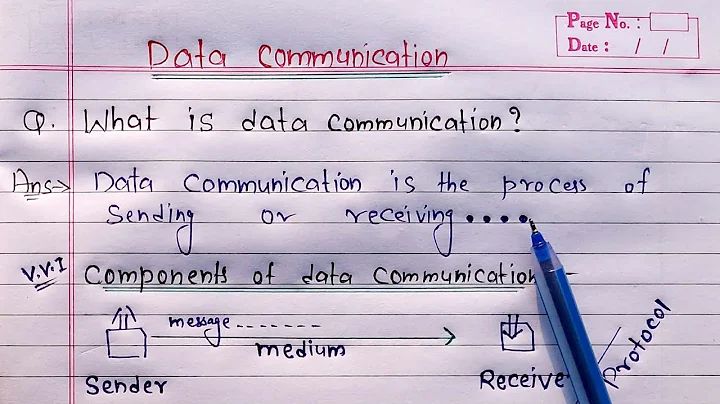 Page No. :
Date : / /
Data Communication
Q. What is data communication?
Ans→ Data Communication is the process of
Sending or receiving ••••
V.V.I Components of data Communication -
message --------
medium
Sender
Receive
Protocol